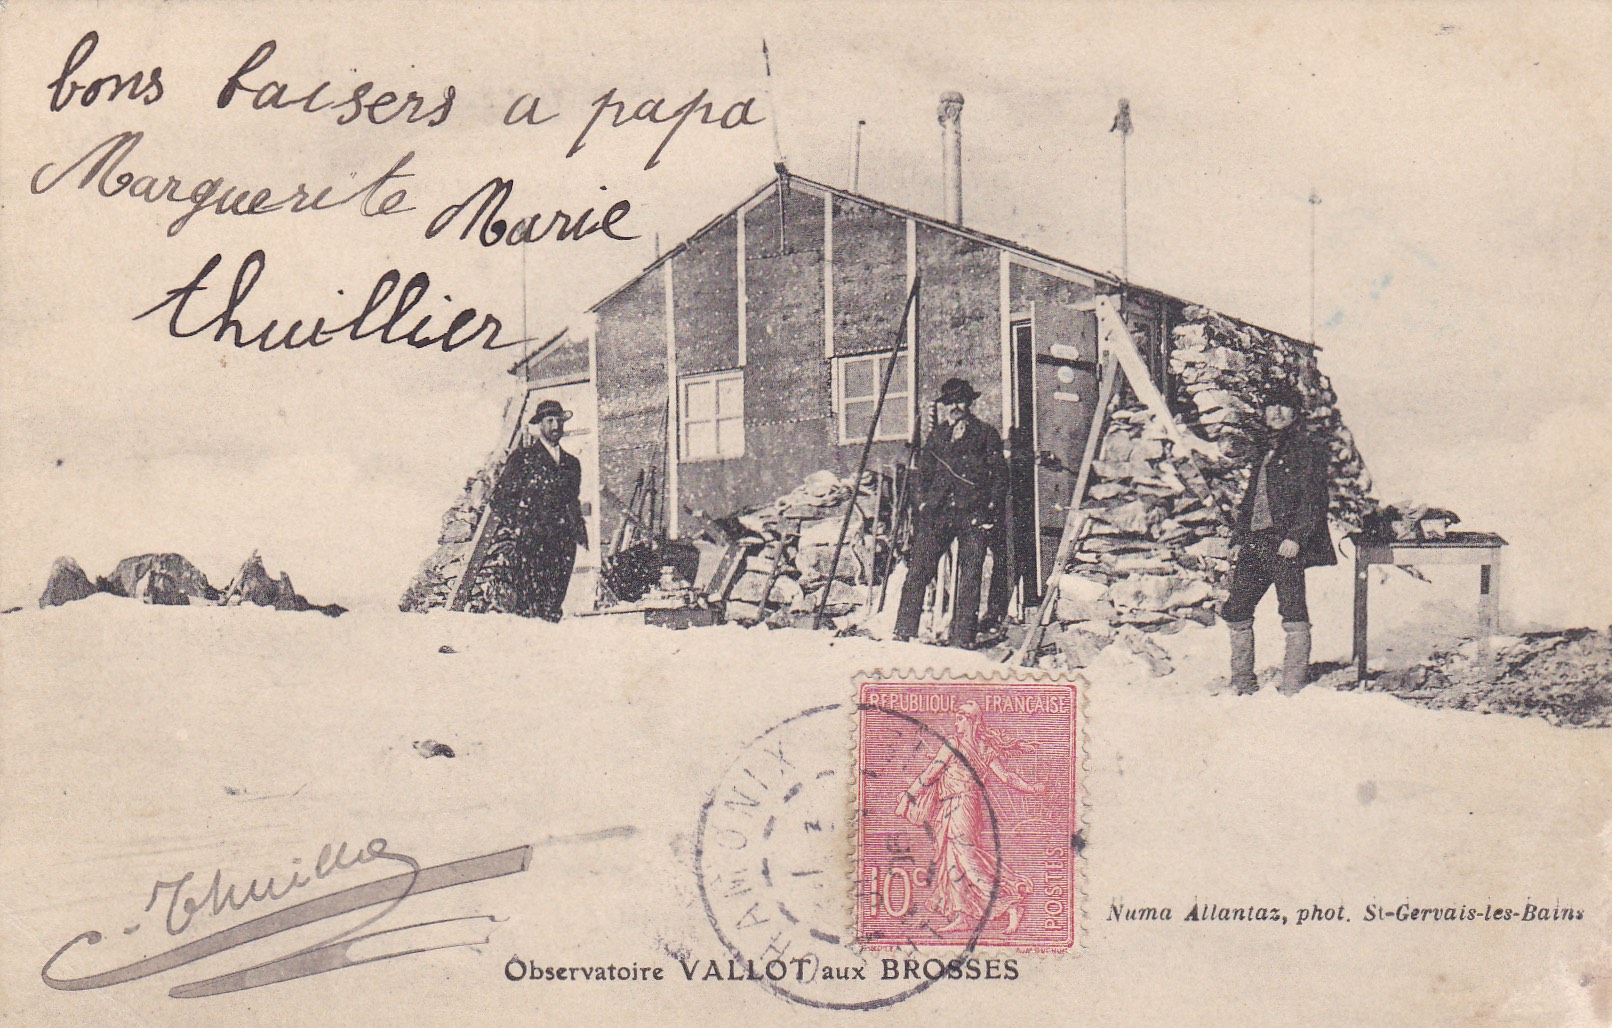 bons baisers a papa
Marguerite Marie
thuillier
REPUBLIQUE FRANÇAISE
10c
POSTES
CHAMONIX
C. Thuillier
Numa Allantaz, phot. St-Gervais-les-Bains
Observatoire VALLOT aux BROSSES